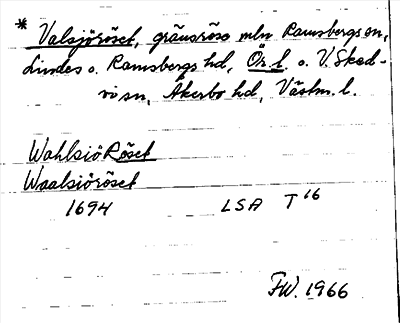 * Valsjöröset, gränsröse mln Ramsbergs sn,
Lindes o. Ramsbergs hd, Ör. l. o. V. Sked-
vi sn, Åkerbo hd, Västm. l.
WahlsiöRöset
Waalsiöröset
1694 LSA T16
FW. 1966